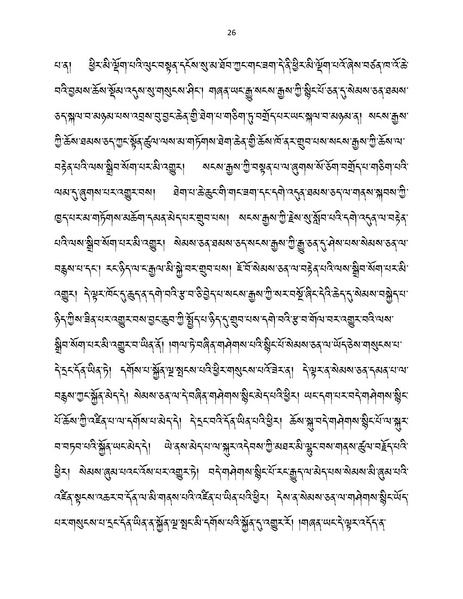 26
པ་ན། ཕྱིར་མི་ལྡོག་པའི་ལུང་བསྟན་དངོས་སུ་མ་ཐོབ་ཀྱང་གང་ཟག་དེ་ནི་ཕྱིར་མི་ལྡོག་པའོ་ཞེས་བཏཾན་ཁ་འོ་ཆེ་
བའི་བྱམས་ཆོས་སྡོམ་འདུས་སུ་གསུངས་ཤིང་། གཞན་ཡང་རྒྱུ་སངས་རྒྱས་ཀྱི་སྙིང་པོ་ཅན་དུ་སེམས་ཅན་ཐམས་
ཅད་སྐལ་བ་མཉམ་པས་འབྲས་བུ་བྱང་ཆེན་གྱི་ཐེག་པ་གཅིག་ཏུ་བགྲོད་པར་ཡང་སྐལ་བ་མཉམ་ན། སངས་རྒྱས་
ཀྱི་ཆོས་ཐམས་ཅད་ཀྱང་སྟོན་ཚུལ་ལས་མ་གཏོགས་ཐེག་ཆེན་གྱི་ཆོས་ཁོ་ནར་གྲུབ་པས་སངས་རྒྱས་ཀྱི་ཆོས་ལ་
བརྟེན་པའི་ལས་སྒྲིབ་སོག་པར་མི་འགྱུར། སངས་རྒྱས་ཀྱི་བསྟན་པ་ལ་ཞུགས་སོ་ཅོག་བགྲོད་པ་གཅིག་པའི་
ལམ་དུ་ཞུགས་པར་འགྱུར་བས། ཐེག་པ་ཆེ་ཆུང་གི་གང་ཟག་དང་དགེ་འདུན་ཐམས་ཅད་ལ་གནས་སྐབས་ཀྱི་
ཁྱད་པར་མ་གཏོགས་མཆོག་དམན་མེད་པར་གྲུབ་པས། སངས་རྒྱས་ཀྱི་རྗེས་སུ་སློབ་པའི་དགེ་འདུན་ལ་བརྟེན་
པའི་ལས་སྒྲིབ་སོག་པར་མི་འགྱུར། སེམས་ཅན་ཐམས་ཅད་སངས་རྒྱས་ཀྱི་རྒྱུ་ཅན་དུ་ཤེས་པས་སེམས་ཅན་ལ་
བརྙས་པ་དང་། རང་ཉིད་ལ་ང་རྒྱལ་མི་སྐྱེ་བར་གྲུབ་པས། ངོ་བོ་སེམས་ཅན་ལ་བརྟེན་པའི་ལས་སྒྲིབ་སོག་པར་མི་
འགྱུར། དེ་ལྟར་ཁོང་དུ་ཆུད་ན་དགེ་བའི་རྩ་བ་ཅི་བྱེད་པ་སངས་རྒྱས་ཀྱི་སར་བསྔོ་ཞིང་དེའི་ཆེད་དུ་སེམས་བསྐྱེད་པ་
ཉིད་ཀྱིས་ཟིན་པར་འགྱུར་བས་བྱང་ཆུབ་ཀྱི་སྤྱོད་པ་ཉིད་དུ་གྲུབ་པས་དགེ་བའི་རྩ་བ་གོལ་བར་འགྱུར་བའི་ལས་
སྒྲིབ་སོག་པར་མི་འགྱུར་བ་ཡིན་ནོ། །གལ་ཏེ་བཞིན་གཤེགས་པའི་སྙིང་པོ་སེམས་ཅན་ལ་ཡོད་ཅེས་གསུངས་པ་
དེ་དྲང་དོན་ཡིན་ཏེ། དགོས་པ་སྐྱོན་ལྔ་སྤང་པའི་ཕྱིར་གསུངས་པའི་ཟེར་ན། དེ་ལྟར་ན་སེམས་ཅན་དམན་པ་ལ་
བརྙས་ཀྱང་སྐྱོན་མེད་དེ། སེམས་ཅན་ལ་དེ་བཞིན་གཤེགས་སྙིང་མེད་པའི་ཕྱིར། ཡང་དག་པར་བདེ་གཤེགས་སྙིང་
པོ་ཆོས་ཀྱི་འཛིན་པ་ལ་དགོས་པ་མེད་དེ། དེ་དྲང་བའི་དོན་ཡིན་པའི་ཕྱིར། ཆོས་སྐུ་བདེ་གཤེགས་སྙིང་པོ་ལ་སྐུར་
བ་བཏབ་པའི་སྐྱོན་ཡང་མེད་དེ། ཡེ་ནས་མེད་པ་ལ་སྐུར་འདེབས་ཀྱི་མཐར་མི་ལྟུང་བས་གནས་ཚུལ་བརྗོད་པའི་
ཕྱིར། སེམས་ཞུམ་པའང་འོས་པར་འགྱུར་ཏེ། བདེ་གཤེགས་སྙིང་པོ་རང་རྒྱུད་ལ་མེད་པས་སེམས་མི་ཞུམ་པའི་
འཛིན་སྟངས་འཆར་བ་དོན་ལ་མི་གནས་པའི་འཛིན་པ་ཡིན་པའི་ཕྱིར། དེས་ན་སེམས་ཅན་ལ་གཤེགས་སྙིང་ཡོད་
པར་གསུངས་པ་དྲང་དོན་ཡིན་ན་སྐྱོན་ལྔ་སྤང་མི་དགོས་པའི་སྐྱོན་དུ་འགྱུར་རོ། །གཞན་ཡང་དེ་ལྟར་འདོད་ན་